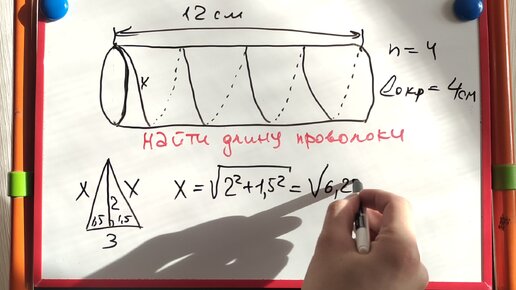 12 см
n = 4
x
ℓокр = 4см
найти длину проволоки
x x
2
1,5 1,5
3
x = √2² + 1,5² = √6,2